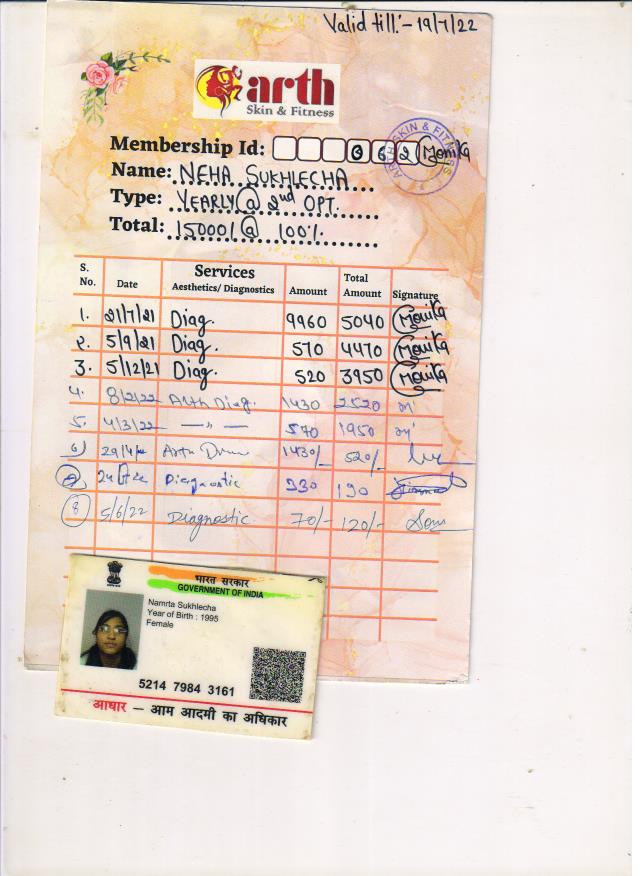 Valid till:- 19/7/22
arth
Skin & Fitness
ARTH SKIN & FITNESS
Membership Id: 0 6 2 Monika
Name: NEHA SUKHLECHA
Type: YEARLY @ 2nd OPT.
Total: 15000/ @ 100%
S. No. Date Services Aesthetics/ Diagnostics Amount Total Amount Signature
१. 21/7/21 Diag. 9960 5040 Monika
२. 5/9/21 Diag. 570 4470 Monika
3. 5/12/21 Diag. 520 3950 Monika
4. 8/2/22 Arth Diag. 1430 2520
5. 4/3/22 —〃— 570 1950
6) 1430/- 520/-
7 Diagnostic 330 190
8 5/6/22 Diagnostic 70/- 120/-
भारत सरकार
GOVERNMENT OF INDIA
Namrta Sukhlecha
Year of Birth : 1995
Female
5214 7984 3161
आधार – आम आदमी का अधिकार